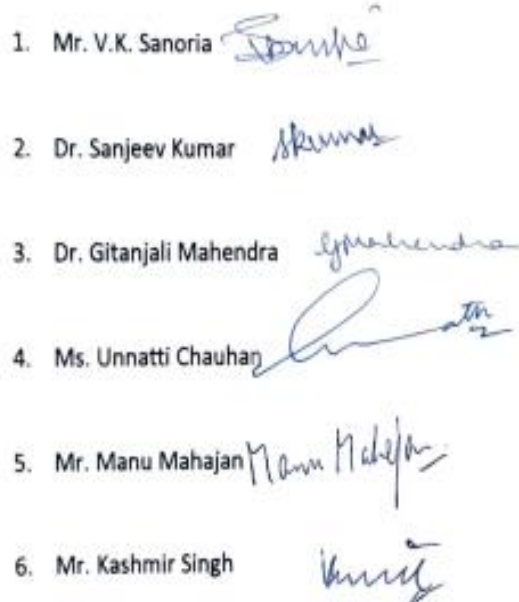 1. Mr. V.K. Sanoria
2. Dr. Sanjeev Kumar Skumar
3. Dr. Gitanjali Mahendra GMahendra
4. Ms. Unnatti Chauhan
5. Mr. Manu Mahajan Manu Mahajan
6. Mr. Kashmir Singh